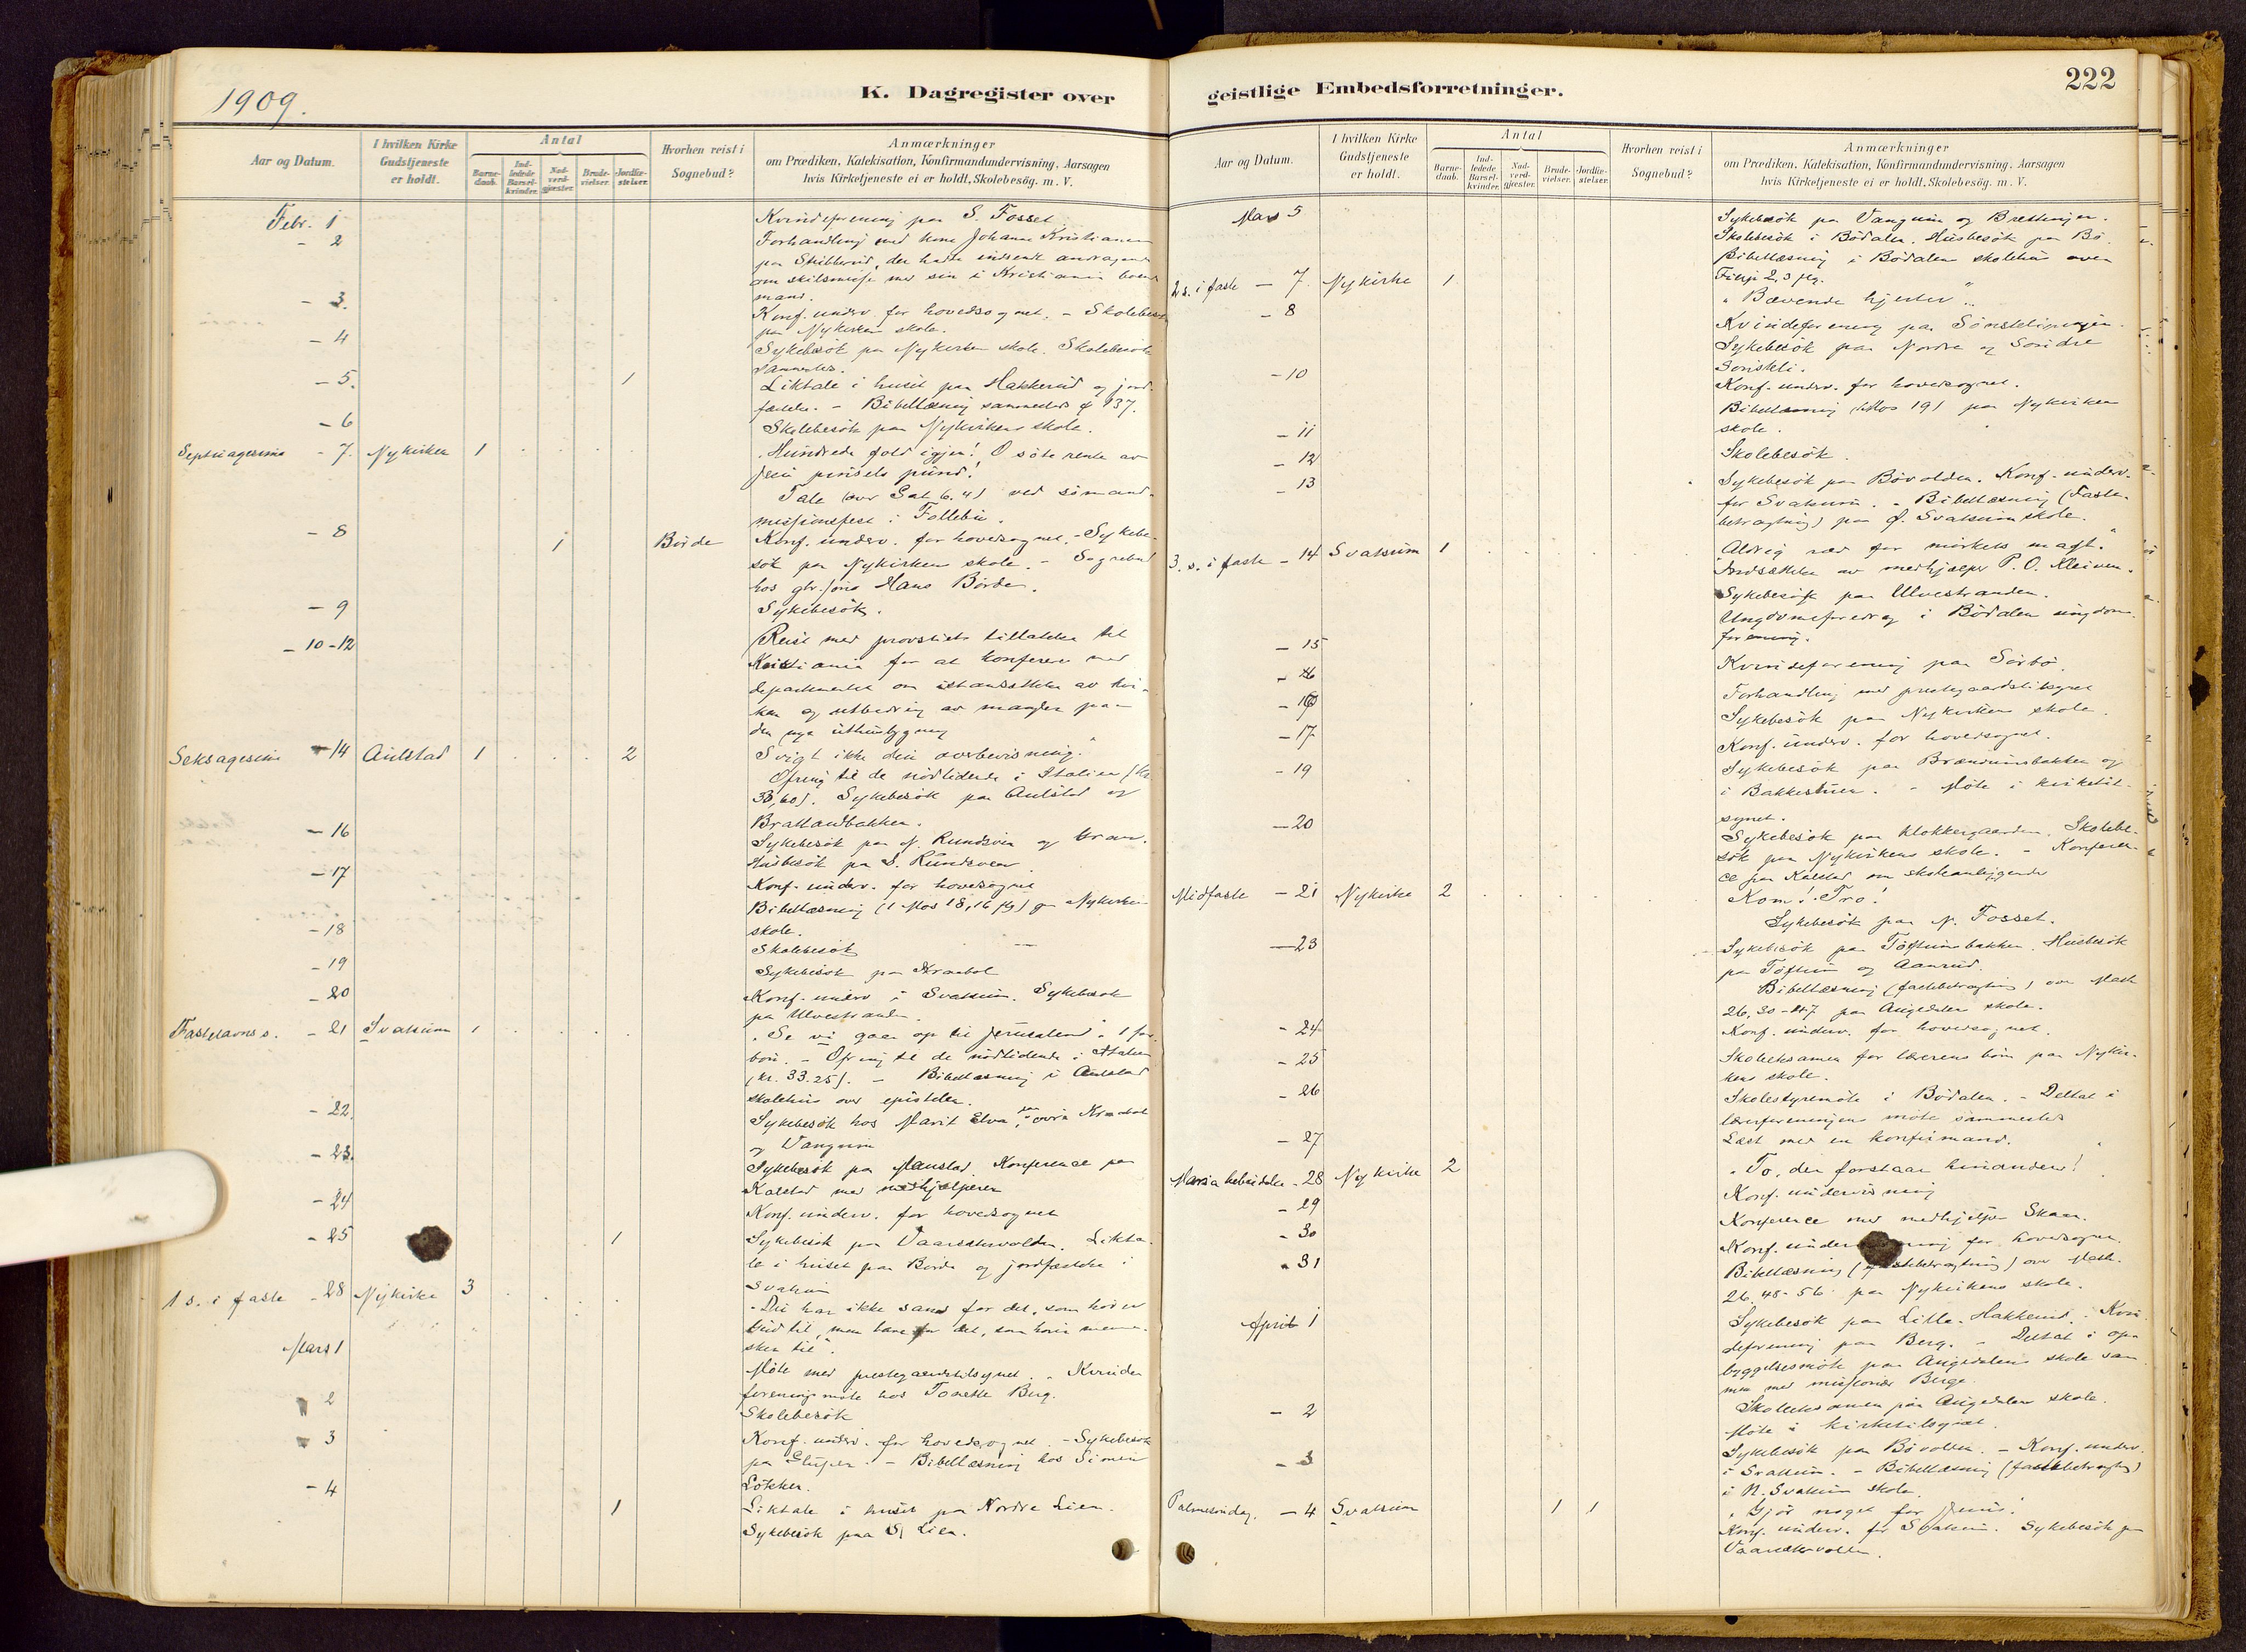 1909.
K. Dagregister over
Aar og Datum.
I hvilken Kirke Gudstjeneste er holdt.
Antal
Barnedaab.
Indledede Barselkvinder.
Nadverdgjæster.
Brudevielser.
Jordfæstelser.
Hvorhen reist i Sognebud?
Anmærkninger
om Prædiken, Katekisation, Konfirmandundervisning, Aarsagen
hvis Kirketjeneste ei er holdt, Skolebesøg. m. V.
Febr. 1 Kvindeforening paa S. Fosset
- 2 Forhandling med kone Johanne Kristiansen
paa Skibberud, der hadde indsendt andragende
om skilsmisse med sin i Kristiania boende
mand.
- 3. Konf. underv. for hovedsognet. - Skolebesök
paa Nykirken skole.
- 4 Sykebesök paa Nykirken skole. Skolebesök
sammesteds.
- 5. 1 Liktale i huset paa Hakkerud og jord-
fæstelse. - Bibellæsning sammesteds 137.
- 6 Skolebesök paa Nykirkens skole.
Septuagesima - 7. Nykirken 1 Hundrede fold igjen! O söte rente av
Jesu pund!
Tale (over Gal. 6. 4) ved sömands-
missionsfest i Follebu.
- 8 1 Börde Konf. underv. for hovedsognet. - Sykebe-
sök paa Nykirken skole. - Sognebud
hos Hans Börde.
- 9 Sykebesök.
- 10-12 Reise med provstiets tilladelse til
Kristiania for at konferere med
departementet om istandsættelse av kir-
ken og utbedring av mangler paa
den nye uthusbygning
Seksagesima - 14 Aulstad 1 2 Svigt ikke din overbevisning.
Ofring til de nödlidende i Italien (kr.
33,60). Sykebesök paa Aulstad og
Brattlandbakken.
- 16 Sykebesök paa N. Rundsveen og
Husbesök paa S. Rundsveen
- 17 Konf. underv. for hovedsognet
Bibellæsning (1 Mos 18,16 flg) paa Nykirkens
skole.
- 18 Skolebesök
- 19 Sykebesök paa Kraaböl
- 20 Konf. underv i Svatsum. Sykebesök
paa Ulvestranden.
Fastelavns s. - 21 Svatsum 1 "Se vi gaar op til Jerusalem". 1 for-
bön. - Ofring til de nödlidende i Italien
(kr. 33.25). - Bibellæsning i Aulstad
skolehus over epistelen.
- 22. Sykebesök hos Marit Elva, paa övre Kraaböl
og Vangum
- 23. Sykebesök paa Maustad. Konferance paa
Kalstad med medhjælperen
- 24 Konf. underv. for hovedsognet
- 25 1 Sykebesök paa Vaarsætervolden. Likta-
le i huset paa Börde og jordfæstelse i
Svatsum
1 s. i faste - 28 Nykirke 3 "Du har ikke sans for det, som hörer
Gud til, men bare for det, som hörer menne-
sker til".
Mars 1 Möte med prestegaardstilsynet. - Kvinde-
foreningsmöte hos Tonette Berg.
2 Skolebesök
3 Konf. underv. for hovedsognet. - Sykebesök
paa - Bibellæsning hos Simen
Lökken.
- 4 1 Liktale i huset paa Nordre Lien.
Sykebesök paa S. Lien.
geistlige Embedsforretninger.
222
Aar og Datum.
I hvilken Kirke Gudstjeneste er holdt.
Antal
Barnedaab.
Indledede Barselkvinder.
Nadverdgjæster.
Brudevielser.
Jordfæstelser.
Hvorhen reist i Sognebud?
Anmærkninger
om Prædiken, Katekisation, Konfirmandundervisning, Aarsagen
hvis Kirketjeneste ei er holdt, Skolebesög. m. V.
Mars 5 Sykebesök paa Vangum og
Skolebesök i Bödalen. Husbesök paa Bö.
Bibellæsning i Bödalen skolehus over
2, 3 flg.
2 s. i faste - 7. Nykirke 1 "Bævende hjerter".
- 8 Kvindeforening paa
Sykebesök paa Nordre og Söndre
- 10 Konf. underv. for hovedsognet.
Bibellæsning (Mos 19) paa Nykirken
skole.
- 11 Skolebesök.
- 12 Sykebesök paa Bövolden. Konf. underv.
- 13 for Svatsum. - Bibellæsning (Faste-
betragtning) paa Ö. Svatsum skole.
3. s. i faste - 14 Svatsum 1 Aldrig ræd for mörkets magt."
Indsættelse av medhjælper P. O. Kleiven.
Sykebesök paa Ulvestranden.
Ungdomsforedrag i Bödalen ungdoms-
forening.
- 15 Kvindeforening paa Sörbö.
- 16 Forhandling med prestegaardstilsynet
Sykebesök paa Nykirken skole.
- 17 Konf. underv. for hovedsognet.
- 19 Sykebesök paa Brændumsbakken og
i Bakkestuen. - Möte i kirketil-
synet.
- 20 Sykebesök paa Klokkergaarden. Skolebe-
sök paa Nykirkens skole. - Konferen-
ce paa Kalstad om skoleanliggender
Midfaste - 21 Nykirke 2 Kom! Tro!
Sykebesök paa N. Fosset.
- 23 Sykebesök paa Töftumsbakken. Husbesök
paa Töftum og Aanrud.
Bibellæsning (fastebetragtning) over Math
26, 30-47 paa Augedalen skole.
- 24 Konf. underv. for hovedsognet.
- 25 Skoleeksamen for lærerens börn paa Nykir-
kens skole.
- 26 Skolestyremöte i Bödalen. - Deltat i
lærerforeningens möte sammesteds
- 27 Læst med en konfirmand.
Maria bebudelse - 28 Nykirke 2 "To, der forstaar hinanden!"
- 29 Konf. undervisning
- 30 Konference med medhjelper Skaar.
- 31 Konf. for hovedsognet.
Bibellæsning (fastebetragtning) over Math.
26, 48-56 paa Nykirkens skole.
April 1 Sykebesök paa Lille-Hakkerud. - Kvin-
deforening paa Berg. - Deltat i op-
byggelsesmöte paa Augedalens skole sam-
men med missionær Berge.
- 2 Skoleeksamen paa Augedalen skole.
Möte i kirketilsynet.
- 3 Sykebesök paa Bövollen. - Konf. underv.
i Svatsum. - Bibellæsning (fastebetragtng)
i N. Svatsum skole.
Palmesöndag. - 4 Svatsum 1 1 "Gjör noget for Jesus."
Konf. underv. for Svatsum. Sykebesök paa
Vaarsætervollen.